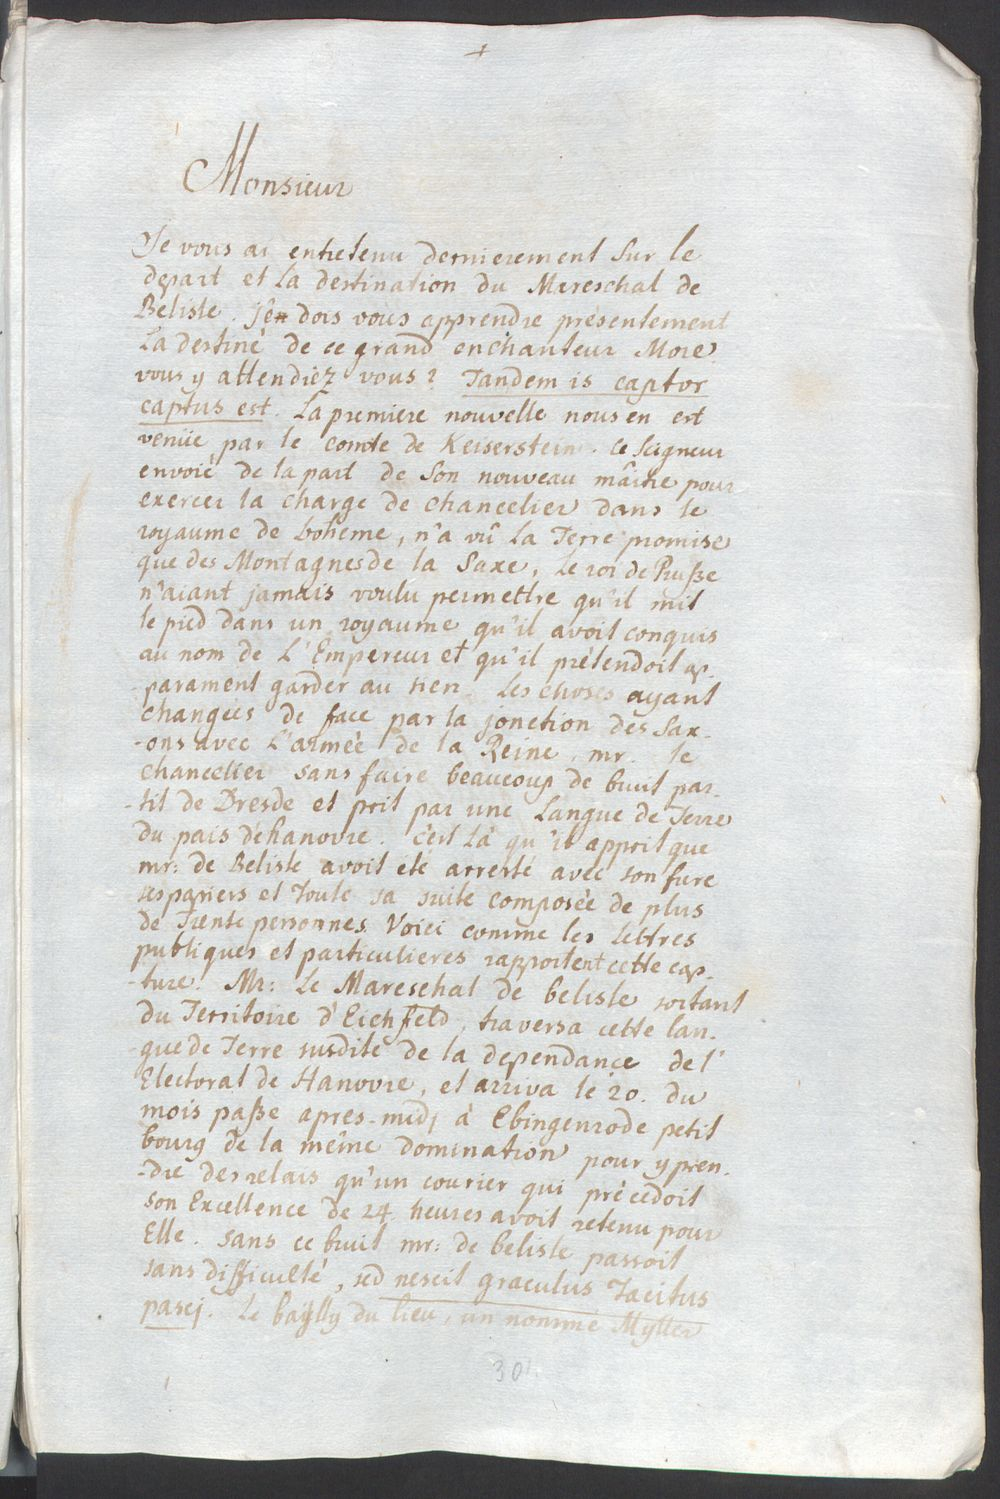 +
Monsieur
Je vous ai entretenu dernierement sur le
depart et la destination du Mareschal de
Belisle. Je dois vous apprendre présentement
la destiné de ce grand enchanteur More
vous y attendiéz vous? Tandem is captor
captus est. La premiere nouvelle nous en est
venüe par le comte de Keiserstein. ce Seigneur
envoié de la part de son nouveau mâitre pour
exercer la charge de chancelier dans le
royaume de boheme, n'a vû la Terre promise
que des Montagnes de la Saxe, le roi de Prusse
n'aiant jamais voulu permettre qu'il mit
le pied dans un royaume qu'il avoit conquis
au nom de L'Empereur et qu'il prétendoit ap-
parament garder au sien. Les choses ayant
changées de face par la jonction des Sax-
-ons avec L'armée de la Reine, mr. le
chancelier sans faire beaucoup de bruit par-
-tit de Dresde et prit par une Langue de Terre
du pais d'éhanovre. C'est là qu'il apprit que
mr: de Belisle avoit été arresté avec son frere
ses papiers et toute sa suite composée de plus
de Trente personnes. Voici comme les lettres
publiques et particulieres rapportent cette cap-
-ture. Mr: Le Mareschal de belisle sortant
du Territoire d'Eichsfeld, traversa cette lan-
gue de Terre susdite de la dependance de l'
Electorat de Hanovre, et arriva le 20. du
mois passe apres-midj à Ebingenrode petit
bourg de la même domination pour y pren-
-dre des relais qu'un courier qui précedoit
son Excellence de 24. heures avoit retenu pour
Elle. sans ce bruit mr: de belisle passoit
sans difficulté, sed nescit graculus Tacitus
pascj. Le bailly du lieu, un nommé Myller
301.